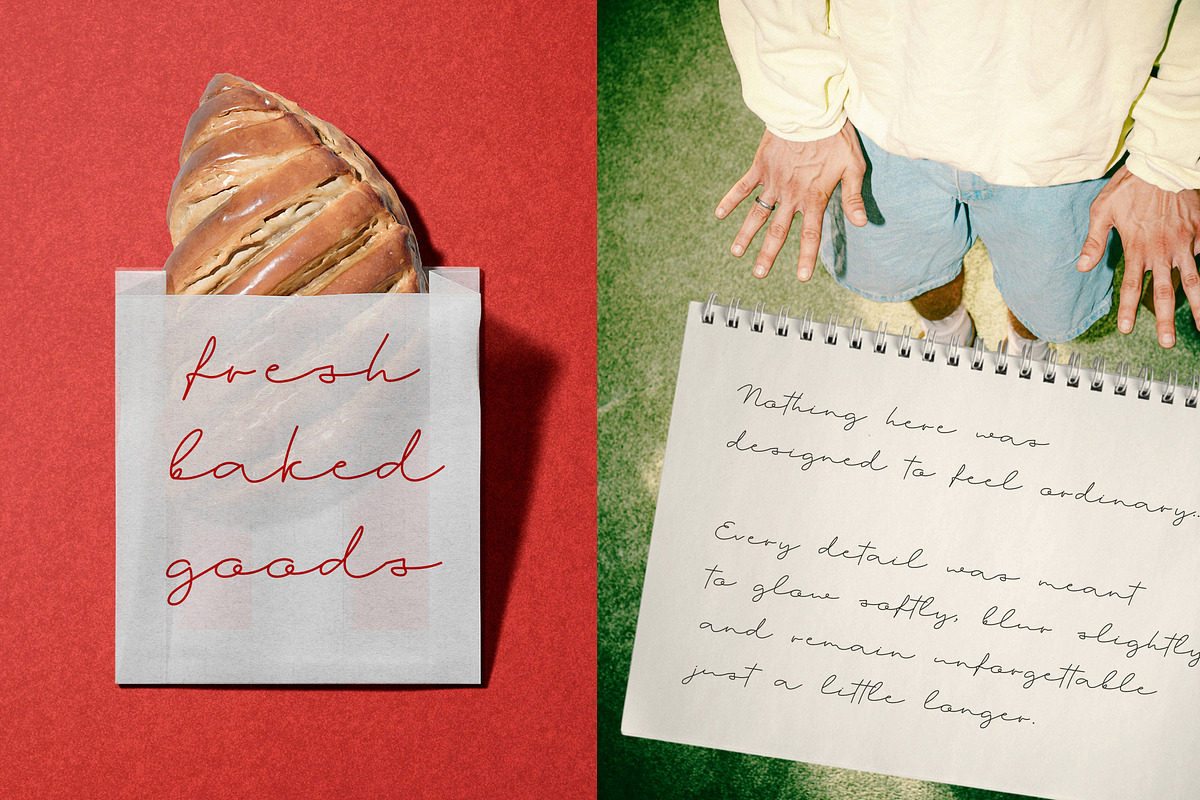 fresh
baked
goods
Nothing here was
designed to feel ordinary..
Every detail was meant
to glow softly, blur slightly
and remain unforgettable
just a little longer.